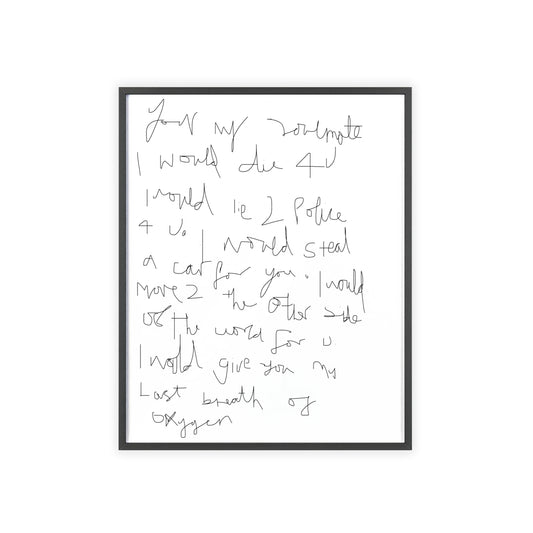 Your my soulmate
I would die 4 U
I would lie 2 Police
4 U. I would steal
a car for you. I would
move 2 the other side
of the world for U
I would give you my
Last breath of
oxygen